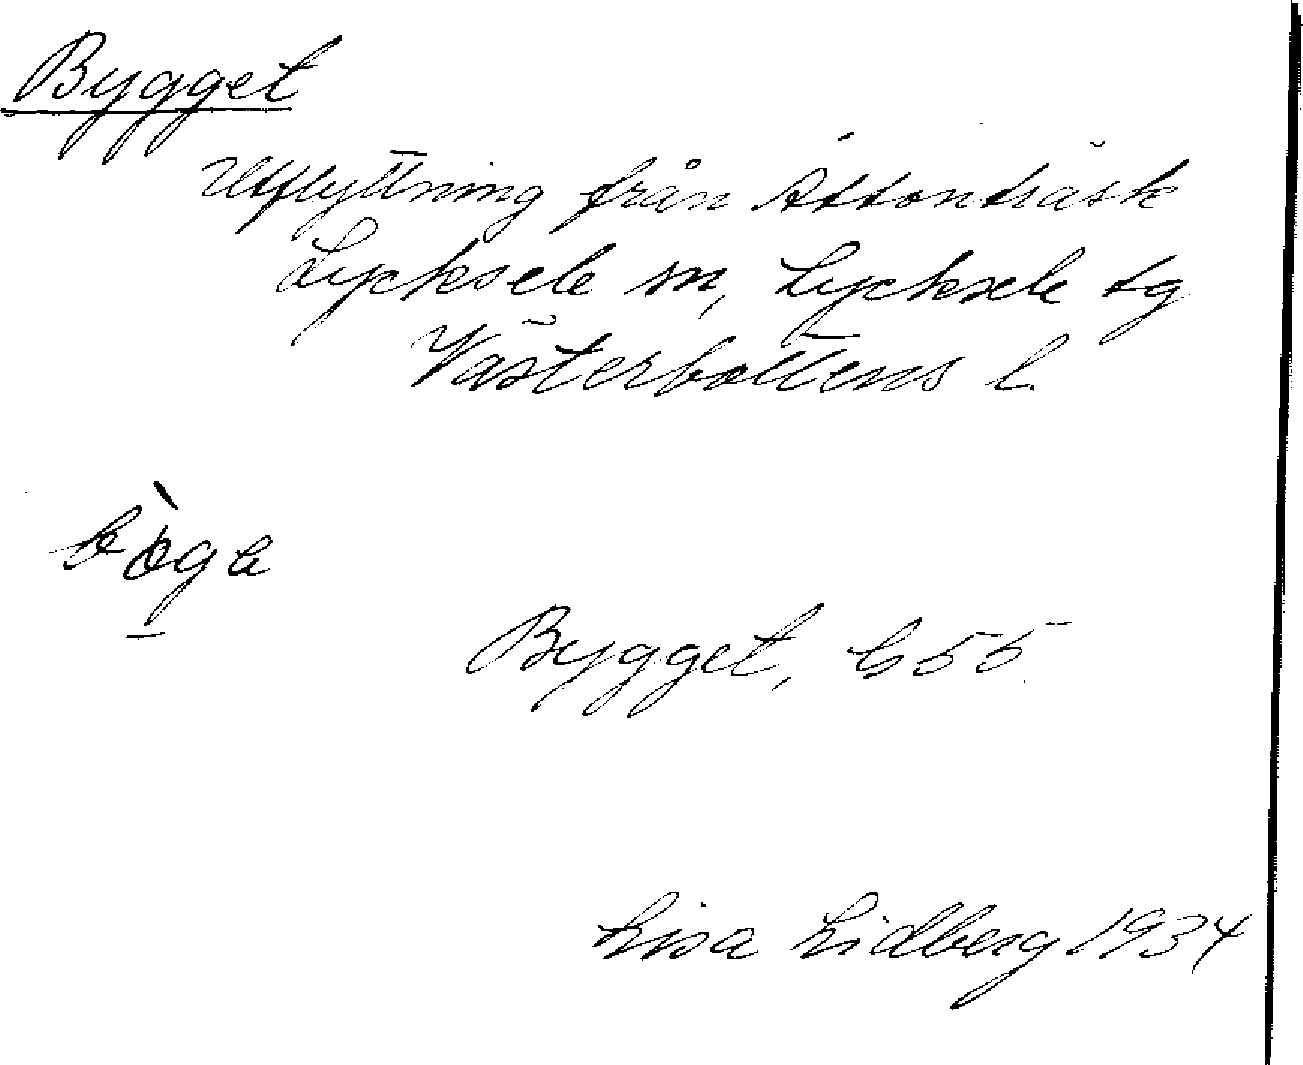 Bygget
Utflyttning från Åttonträsk
Lycksele sn, Lycksele tg
Västerbottens l.
Bygget, b 55
Lisa Lidberg 1934